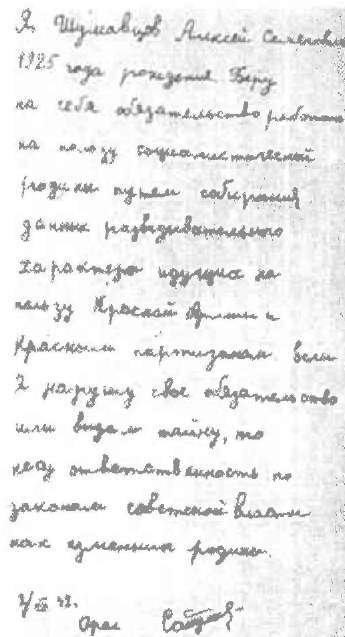 Я Шумавцов Алексей Семенович
1925 года рождения Беру
на себя обязательство работать
на пользу социалистической
родины путем собирания
данных разведывательного
характера идущих на
пользу Красной Армии и
Красным партизанам Если
я нарушу свое обязательство
или выдам тайну, то
несу ответственность по
законам советской власти
как изменник родины.
Орел